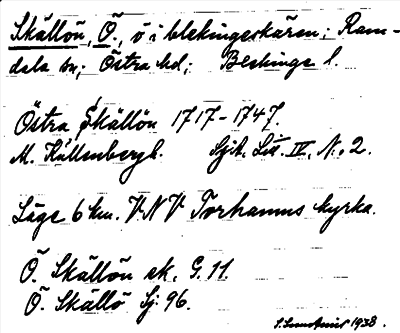 Skällön, Ö., ö i blekingeskären; Ram-
dala sn; Östra hd; Blekinge l.
Östra Skällön 1717-1747.
M. Källenbergh. Sjk. Lit. IV, N:o 2.
Läge 6 km. VNV Torhamns kyrka.
Ö. Skällön ek. G. 11.
Ö. Skällö Sj 96.
1938.